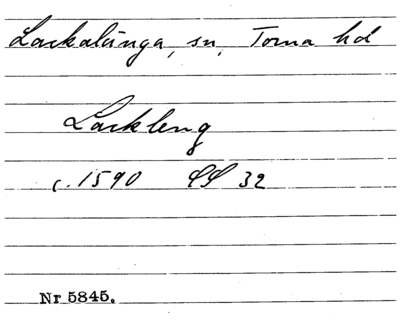 Lackalänga, sn, Torna hd
Lackleng
c. 1590 32
Nr 5845.